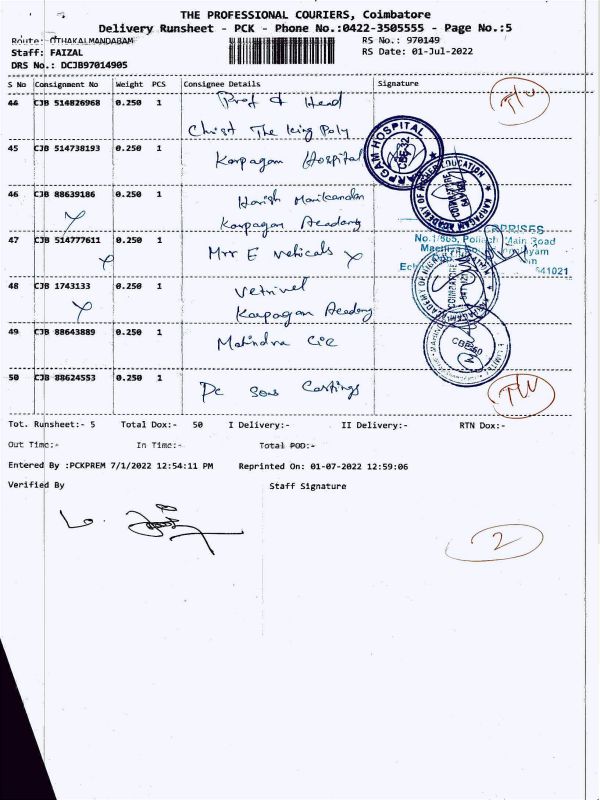 THE PROFESSIONAL COURIERS, Coimbatore
Delivery Runsheet - PCK - Phone No.:0422-3505555 - Page No.:5
Route: OTHAKALMANDABAM
RS No.: 970149
Staff: FAIZAL
RS Date: 01-Jul-2022
DRS No.: DCJB97014905
S No Consignment No Weight PCS Consignee Details Signature
44 CJB 514826968 0.250 1 Prof & Head
Christ The King Poly
T/U
45 CJB 514738193 0.250 1 Karpagam Hospital
KARPAGAM HOSPITAL
CBE-32
46 CJB 88639186 0.250 1 Harish Manikandan
Karpagam Academy
KARPAGAM ACADEMY OF HIGHER EDUCATION
COIMBATORE
641 021
47 CJB 514777611 0.250 1 Mrr E vehicals
PRISES
Main Road
641021
48 CJB 1743133 0.250 1 Vetrivel
Karpagam Academy
COIMBATORE
49 CJB 88643889 0.250 1 Mahindra Cie
CBE-50
50 CJB 88624553 0.250 1 Dc Sons Castings
T/U
Tot. Runsheet:- 5 Total Dox:- 50 I Delivery:- II Delivery:- RTN Dox:-
Out Time:- In Time:- Total POD:-
Entered By :PCKPREM 7/1/2022 12:54:11 PM Reprinted On: 01-07-2022 12:59:06
Verified By Staff Signature
2